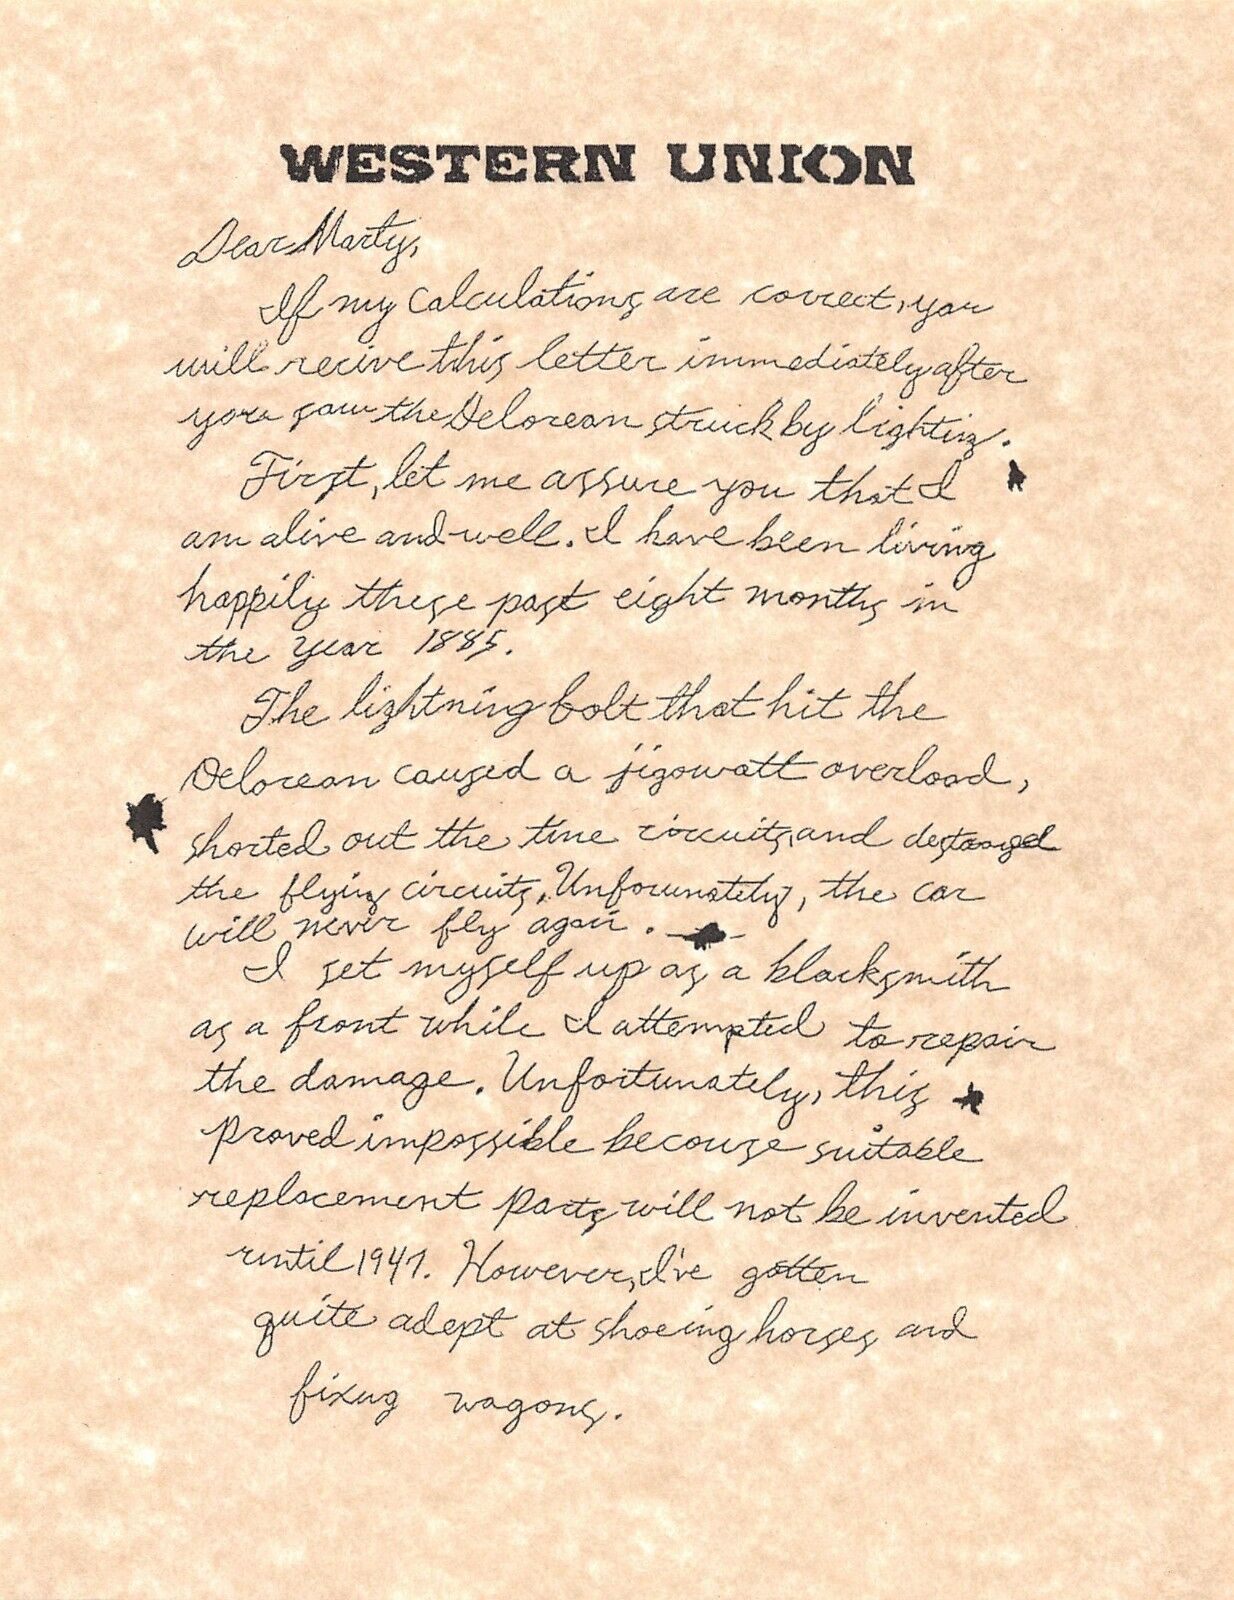 WESTERN UNION
Dear Marty,
If my calculations are correct, you
will recive this letter immediately after
you saw the Delorean struck by lightinz.
First, let me assure you that I
am alive and well. I have been living
happily these past eight months in
the year 1885.
The lightning bolt that hit the
Delorean caused a jigowatt overload,
shorted out the time circuits, and destroyed
the flying circuits. Unforunately, the car
will never fly again.
I set myself up as a blacksmith
as a front while I attempted to repair
the damage. Unfortunately, this
proved impossible because suitable
replacement parts will not be invented
until 1947. However, I've gotten
quite adept at shoeing horses and
fixing wagons.